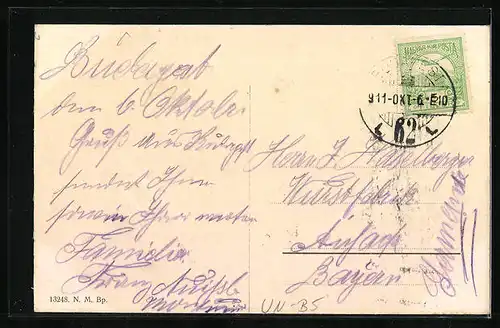 Budapest
den 6. Oktober
Gruß aus Budapest
sendet Ihnen
sowie Ihrer werten
Familie
Franz
MAGYAR KIR. POSTA
911-OKT-6-E10
62
Herrn J. Haselberger
Wurstfabrik
Bayern
13248. N. M. Bp.
UN-BS